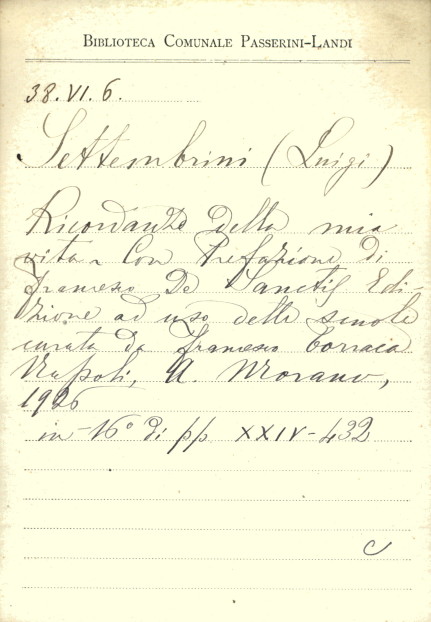 BIBLIOTECA COMUNALE PASSERINI-LANDI
38.VI.6.
Settembrini (Luigi)
Ricordanze della mia
vita - Con Prefazione di
Francesco De Sanctis Edi-
zione ad uso delle scuole
curata da Francesco Torraca
Napoli, A. Morano,
1926
in-16° di pp XXIV-432
C